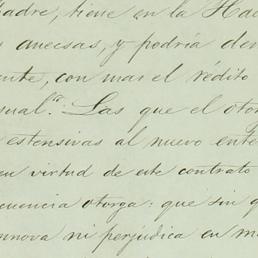 Madre, tiene en la Hac
anecsas, y podria dev
ente, con mas el rédito
sual. Las que el otor
estensivas al nuevo ente
en virtud de este contrato
cuencia otorga: que sin q
nnova ni perjudica en m